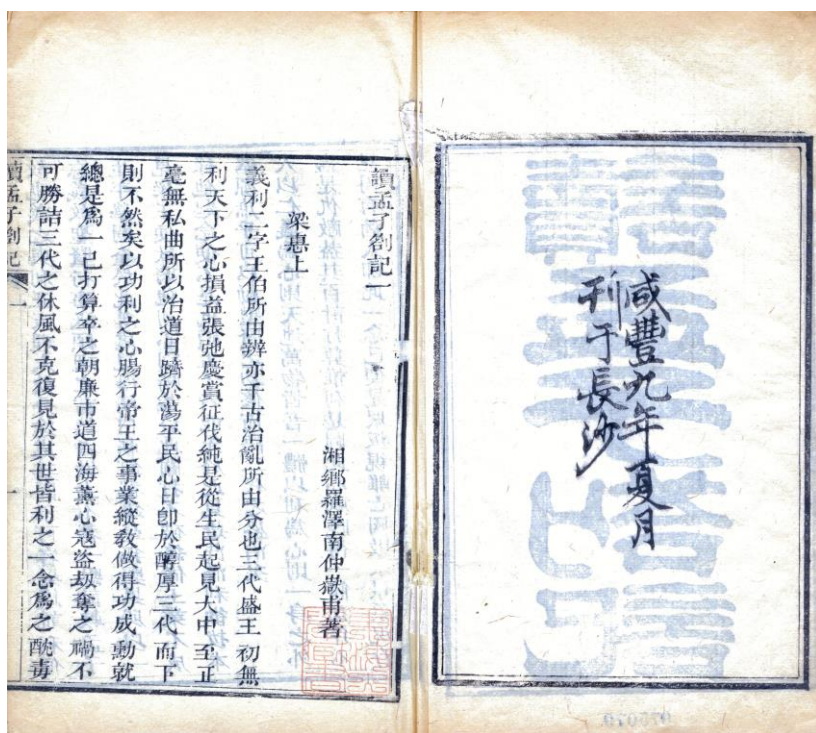 咸豐九年夏月
刊于長沙
讀孟子劄記一
湘鄉羅澤南仲嶽甫著
梁惠上
義利二字王伯所由辨亦千古治亂所由分也三代盛王初無
利天下之心損益張弛慶賞征伐純是從生民起見大中至正
毫無私曲所以治道日躋於蕩平民心日卽於醇厚三代而下
則不然矣以功利之心腸行帝王之事業縱敎做得功成勳就
總是爲一己打算卒之朝廉市道四海薰心寇盜刼奪之禍不
可勝詰三代之休風不克復見於其世皆利之一念爲之酖毒
讀孟子劄記
一